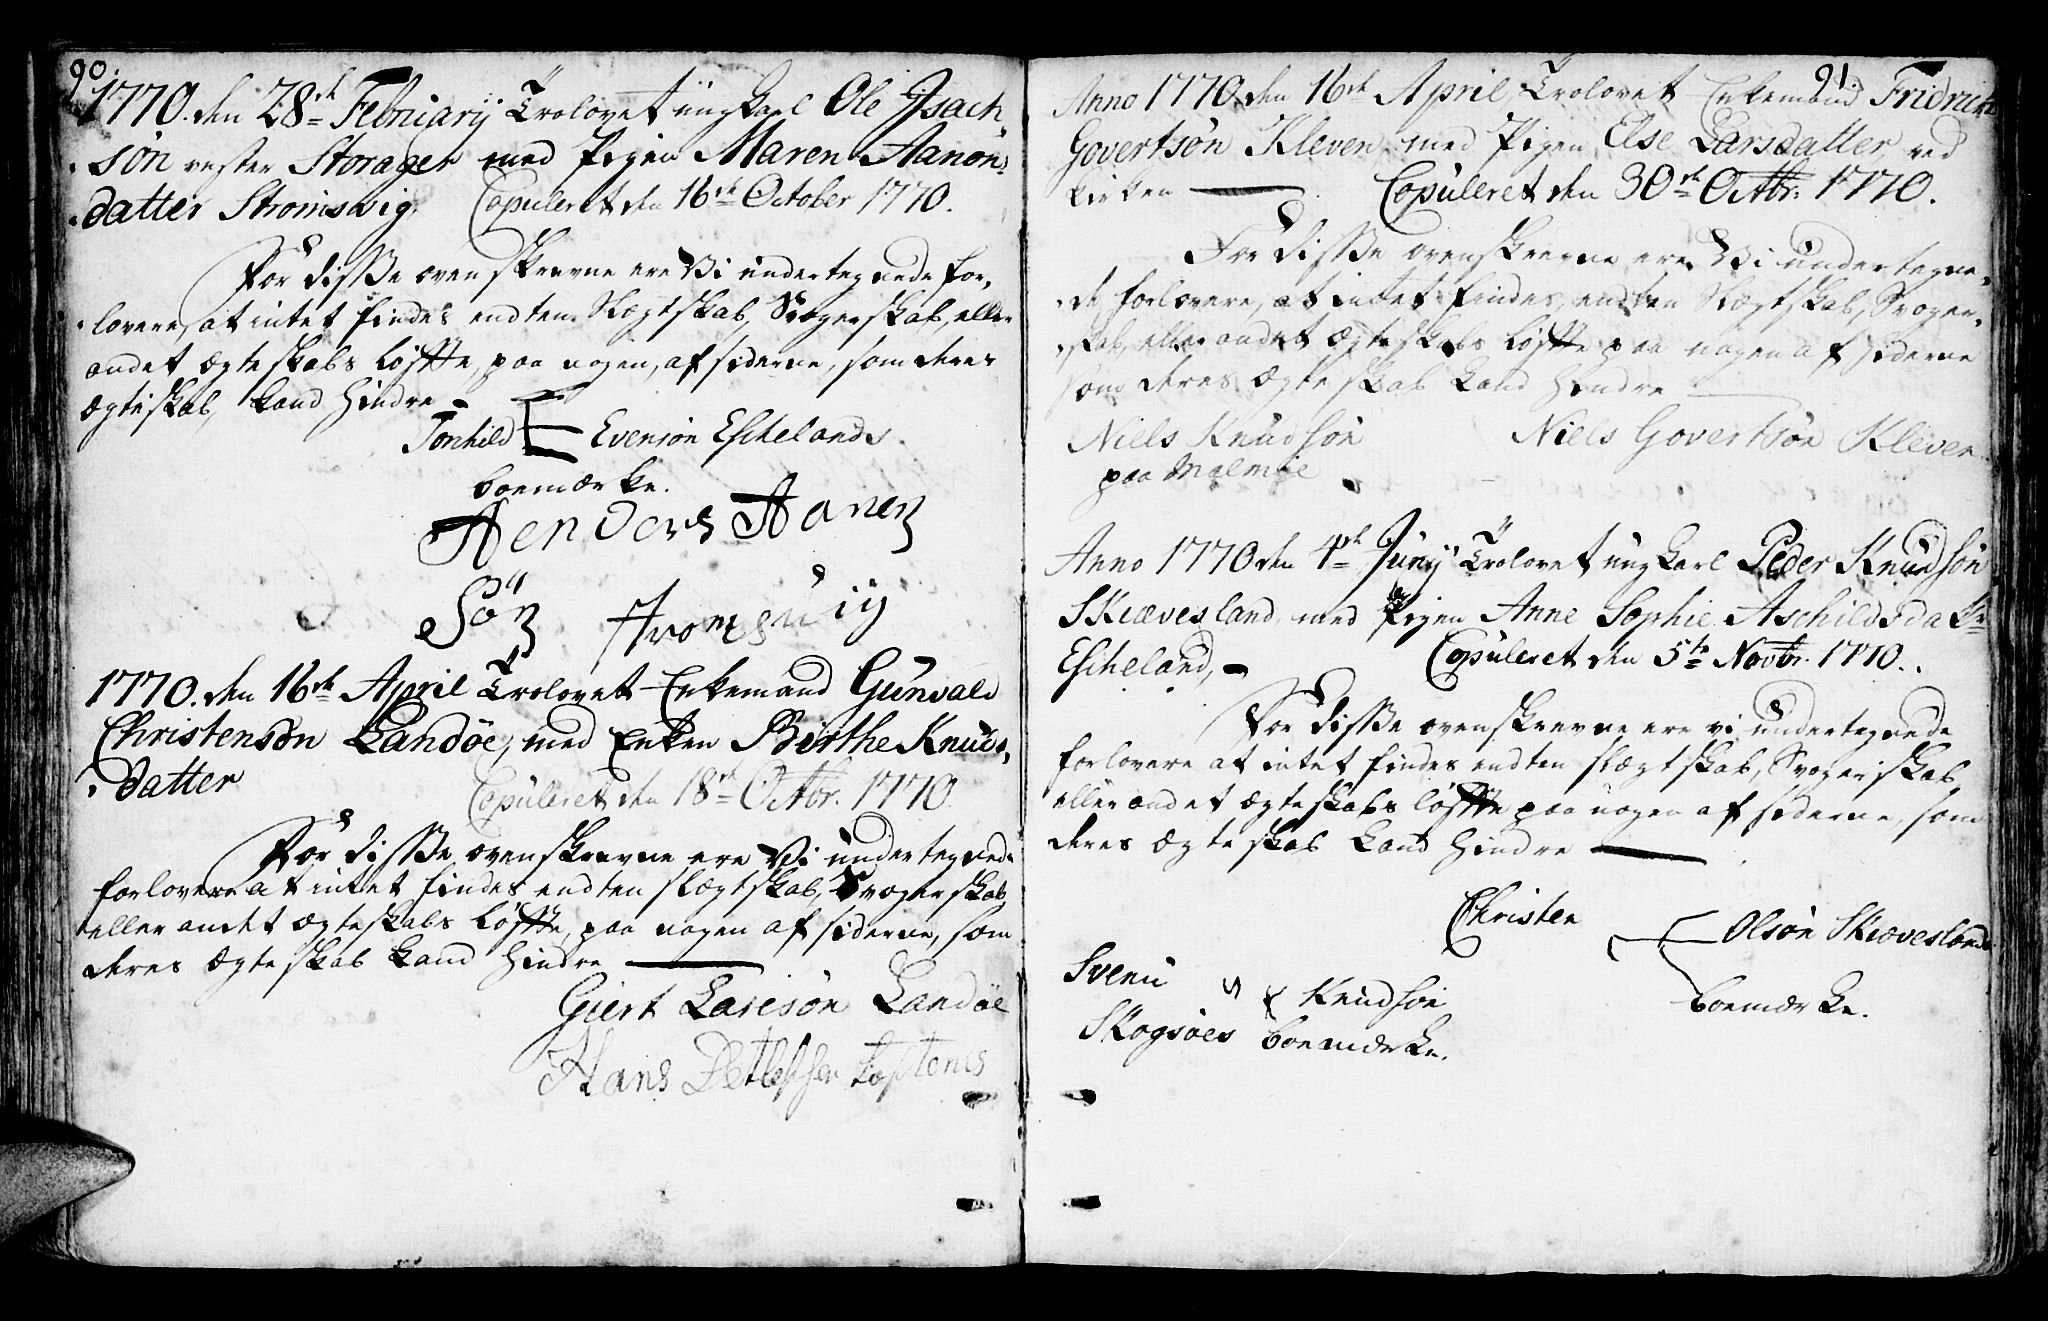 90.
1770. den 28de Februarij Trolovet ungkarl Ole Isach-
søn vester Storager med Pigen Maren Aanon-
datter Stromswig. Copuleret den 16de October 1770.
For disse ovenskrevne ere Vi undertegnede for-
lovere, at intet findes endten Slægtskab, Svogerskab, eller
andet ægteskabs løffte, paa nogen, af siderne, som deres
ægteskab, kand hindre
Tonhild Evensøn Escheland
boemærke.
Aenders Aanen
Søn Stromsuiig
1770. den 16de April Trolovet Enkemand Gunvald
Christensøn Landøe, med Enken Birthe Knuds-
datter
Copuleret den 18de Octbr. 1770.
For disse ovenskrevne ere Vi undertegnede
forlovere at intet findes endten slægtskab, Svogerskab
eller andet ægteskabs løffte, paa nogen af siderne, som
deres ægteskab kand hindre
Giert Larsøn Landøe
Hans Detlefsen
91.
Anno 1770 den 16de April, Trolovet Enkemand Fridrich
Govertsøn Kleven, med Pigen Else Larsdatter, ved
kirken Copuleret den 30de Octbr. 1770.
For disse ovenskrevne ere Vi undertegne-
de forlovere, at intet findes, endten Slægtskab, Svoger-
skab, eller andet ægteskabs løffte paa nogen af siderne
som deres ægteskab kand hindre
Niels Knudsøn Niels Govertsøn Kleven
paa Malmøe
Anno 1770 den 4de Junij Trolovet ungkarl Peder Knudsøn
Skiævesland, med Pigen Anne Sophie Aschildsdatr
Escheland, Copuleret den 5te Novbr. 1770.
For disse ovenskrevne ere vi undertegnede
forlovere at intet findes endten slægtskab, Svogerskab
eller andet ægteskabs løffte paa nogen af siderne, som
deres ægteskab kand hindre
Christen Olsøn Skiævesland
boemærke.
Svenu Knudsøn
Skogsøes boemærke.